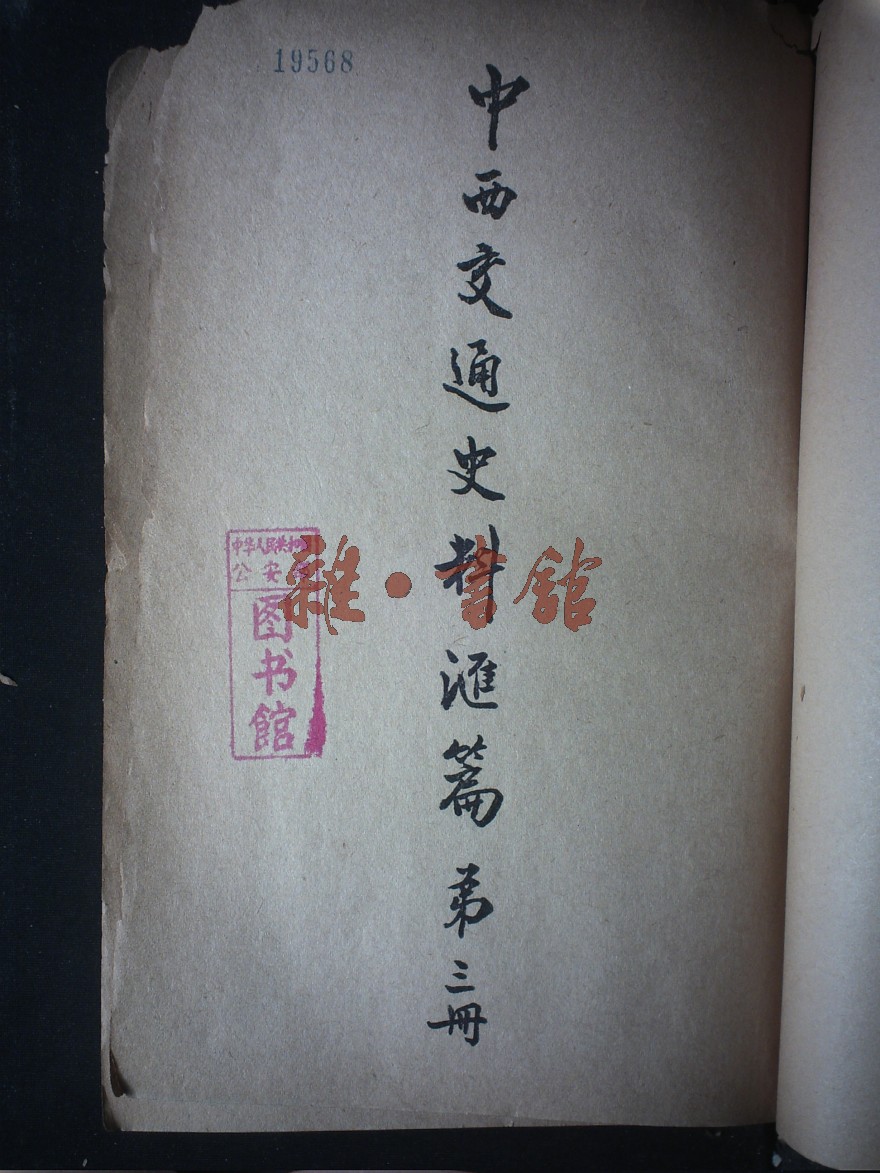 19568
中西交通史料滙篇 第三冊
中华人民共和国
公安部
图书館
雜·書館